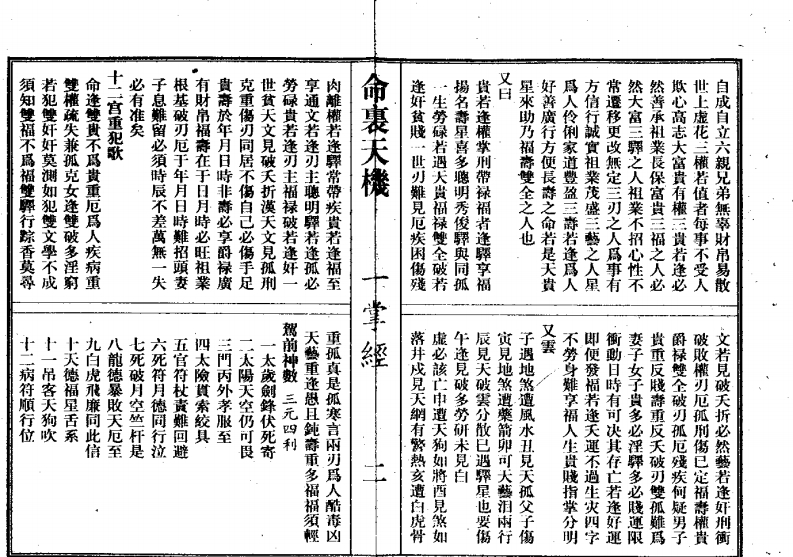 自成自立六親兄弟無辜財帛易散
世上虛花三權若值者每事不受人
欺心高志大富貴有權三貴若逢必
然善承祖業長保富貴三福之人必
然大富三驛之人祖業不招心性不
常遷移更改無定三刃之人爲事有
方信行誠實祖業茂盛三藝之人星
爲人伶俐家道豐盈三壽若逢爲人
好善廣行方便長壽之命若是天貴
星來助乃福壽雙全之人也
又曰
貴若逢權掌刑帶禄福者逢驛享福
揚名壽星喜多聰明秀俊驛與同孤
一生勞碌若遇天貴福禄雙全破若
逢奸貧賤一世刃難見厄疾困傷殘
文若見破夭折必然藝若逢奸刑衝
破敗權刃厄孤刑傷巳定福壽權貴
爵禄雙全破刃孤厄殘疾何疑男子
貴重反賤壽重反夭破刃雙孤難爲
妻子女子貴多必淫驛多必賤運限
衝動日時有可決其存亡若逢好運
即便發福若逢夭運不過生灾四字
不勞身難享福人生貴賤指掌分明
又雲
子遇地煞遭風水丑見天孤父子傷
寅見地煞遭藥箭卯可天藝泪兩行
辰見天破雲分散巳遇驛星也要傷
午逢見破多勞研未見白
虛必該亡申遭天狗如將酉見煞如
落井戍見天網有繁熱亥遭白虎骨
命裏天機 一掌經 二
肉離權若逢驛常帶疾貴若逢福至
享通文若逢刃主聰明驛若逢孤必
勞碌貴若逢刃主福禄破若逢奸一
世貧天文見破夭折漢天文見孤刑
克重傷刃同居不傷自己必傷手足
貴壽於年月日時非壽必享爵禄廣
有財帛福壽在于日月時必旺祖業
根基破刃厄于年月日時難招頭妻
子息難留必須時辰不差萬無一失
必有准矣
十二宫重犯歌
命逢雙貴不爲貴重厄爲人疾病重
雙權疏失兼孤克女逢雙破多淫窮
若犯雙奸奸莫測如犯雙文學不成
須知雙福不爲福雙驛行踪香莫尋
重孤真是孤寒言兩刃爲人酷毒凶
天藝重逢愚且鈍壽重多福福須輕
駕前神數 三元四利
一太歲劍鋒伏死寄
二太陽天空仍可畏
三門丙外孝服至
四太險貫索絞具
五官符杖責難回避
六死符月德同行泣
七死破月空竺杆是
八龍德暴敗天厄至
九白虎飛廉同此信
十天德福星舌系
十一吊客天狗吹
十二病符順行位